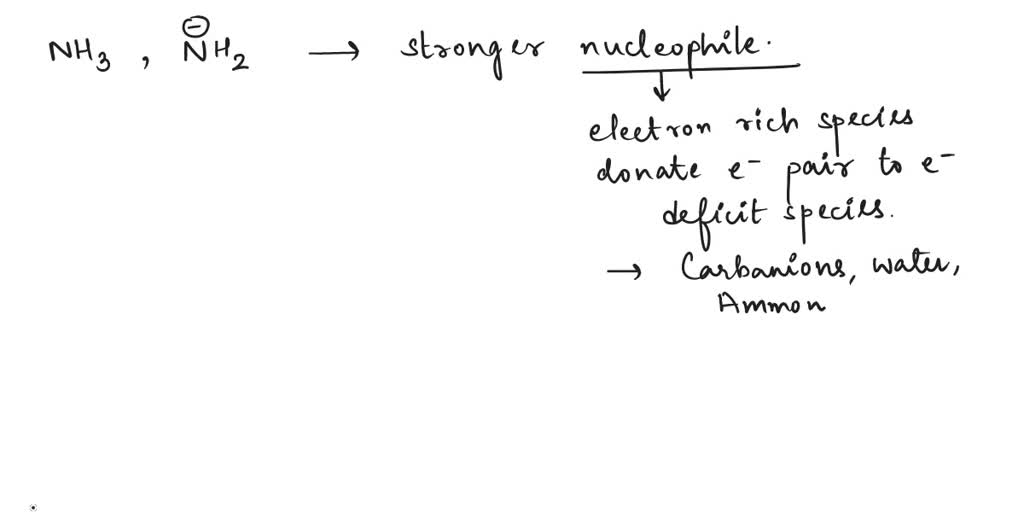 NH₃ , N̊H₂⊖ → stronger nucleophile.
electron rich species
donate e⁻ pair to e⁻
deficit species.
→ Carbanions, water,
Ammon